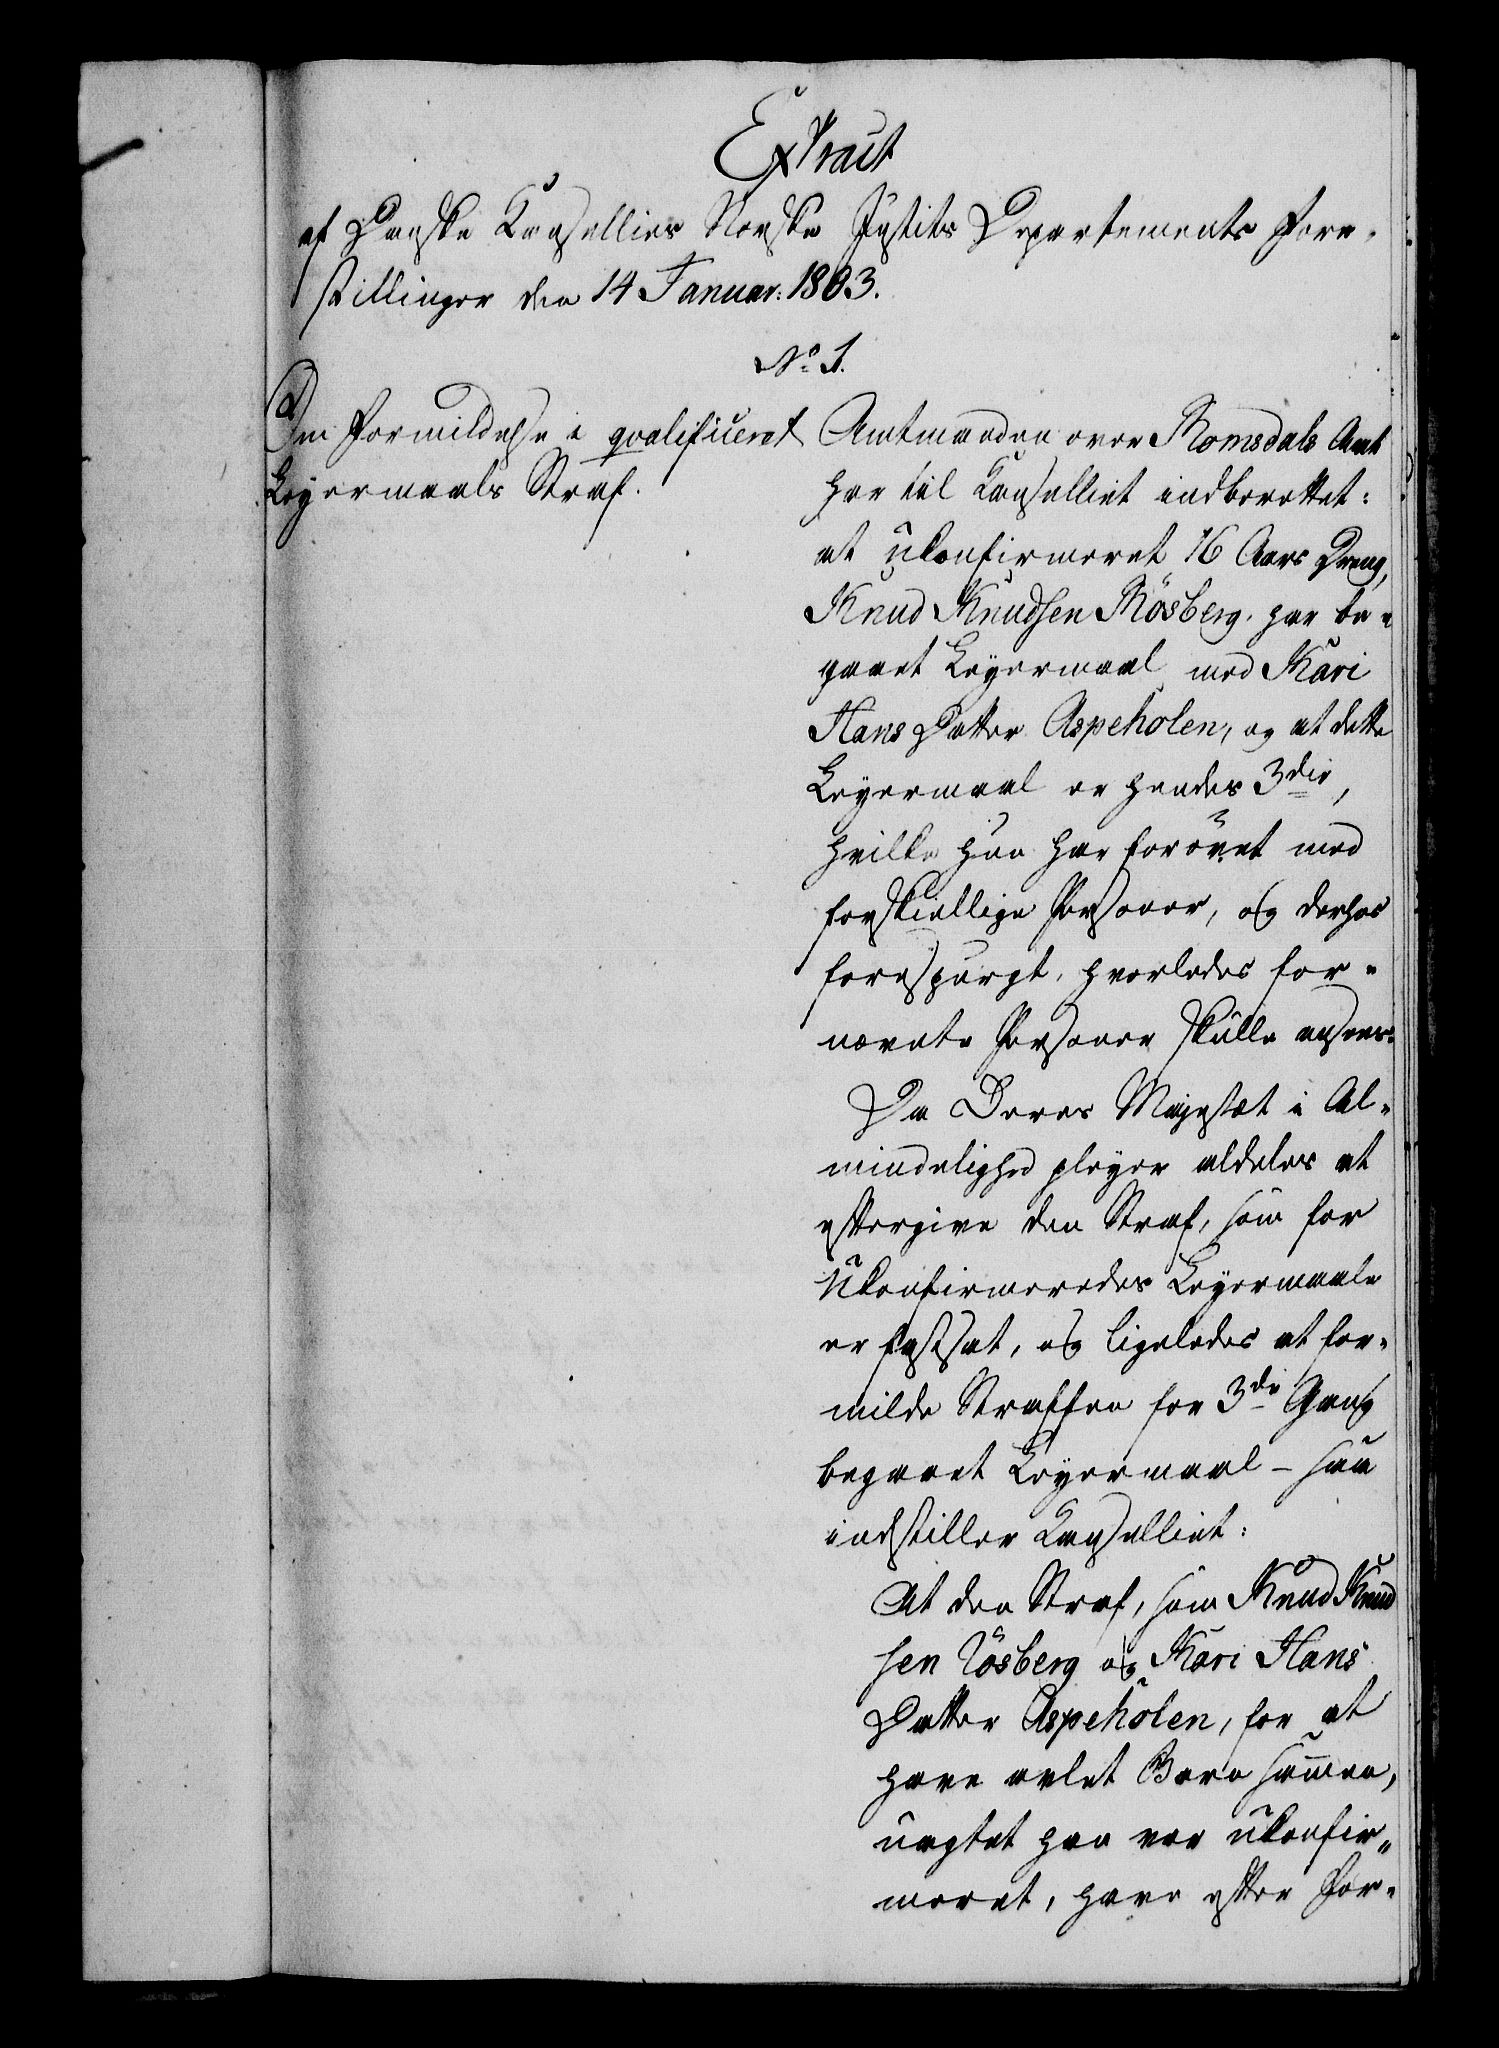 Extract
af Danske Kancellies Norske Justits Departements Fore-
stillinger den 14 Januar: 1803.
No 1.
Om Formildelse i qvalificeret
Leyermaals Straf.
Amtmanden over Romsdals Amt
har til Cancelliet indberettet:
at ukonfirmeret 16 Aars Dreng,
Knud Knudsen Rösberg har be-
gaaet Leyermaal med Kari
Hans Datter Aspeholen, og at dette
Leyermaal er hendes 3die,
hvilke hun har forövet med
forskiellige Personer, og derhos
forespurgt, hvorledes for-
nævnte Personer skulle ansees.
Da Deres Majestæt i Al-
mindelighed pleyer aldeles at
eftergive den Straf, som for
Ukonfirmeredes Leyermaale
er fastsat, og ligeledes at for-
milde Straffen for 3de Gang
begaaet Leyermaal – saa
indstiller Cancelliet:
At den Straf, som Knud Knud
sen Rösberg og Kari Hans
Datter Aspeholen, for at
have avlet Barn sam̅en,
uagtet han var ukonfir-
meret, have efter For-